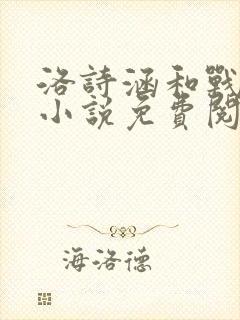 洛詩涵和戰
小說免費閱
海洛德